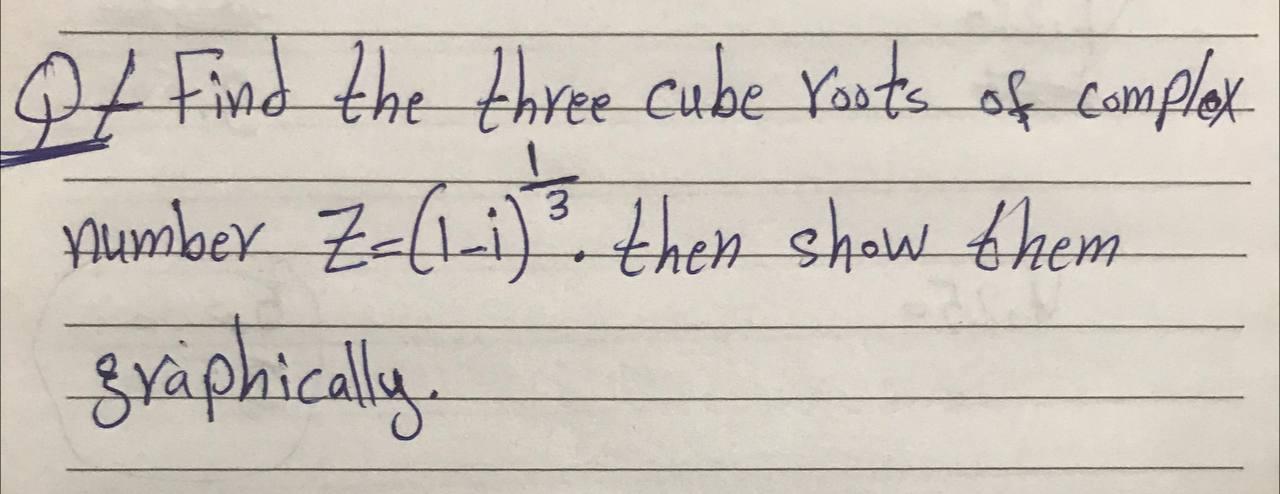 Q1 Find the three cube roots of complex
number Z=(1-i)^(1/3). then show them
graphically.